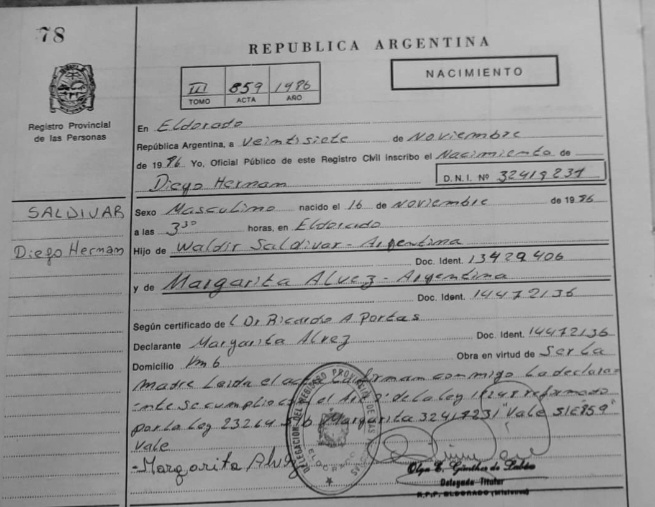 78
REPUBLICA ARGENTINA
III 859 1986
TOMO ACTA AÑO
NACIMIENTO
Registro Provincial
de las Personas
En Eldorado
República Argentina, a Veintisiete de Noviembre
de 1986 Yo, Oficial Público de este Registro Civil inscribo el Nacimiento de
Diego Hernam
D.N.I. Nº
SALDIVAR
Diego Hernan
Sexo Masculino nacido el 16 de Noviembre de 1986
a las 3 30 horas, en Eldorado
Hijo de Waldir Saldivar - Argentina
Doc. Ident. 13429406
y de Margarita Alvez - Argentina
Doc. Ident. 14472136
Según certificado de Dr Ricardo A
Declarante Margarita Alvez Doc. Ident. 14472136
Domicilio Km 6 Obra en virtud de Ser La
Madre Leida el firman conmigo La declara
nte se cumplio el de la ley 18248 reformado
por La Ley 23264 Margarita "Vale
Vale
- Margarita Alvez
DELEGACION DEL REGISTRO PROVINCIAL DE LAS
ELDORADO
Olga E. Günther de
Delegada Titular
ELDORADO (Misiones)